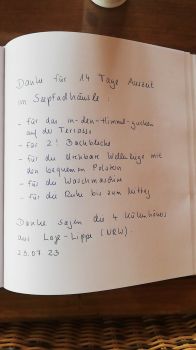 Danke für 14 Tage Auszeit
im Seepfadhäusle:
- für das in-den-Himmel-gucken
auf der Terrasse
- für 2! Backbleche
- für die dehnbare Wellenliege mit
den bequemen Polstern
- für die Waschmaschine
- für die Ruhe bis zum Mittag
Danke sagen die 4
aus Lage-Lippe (NRW).
23.07.23